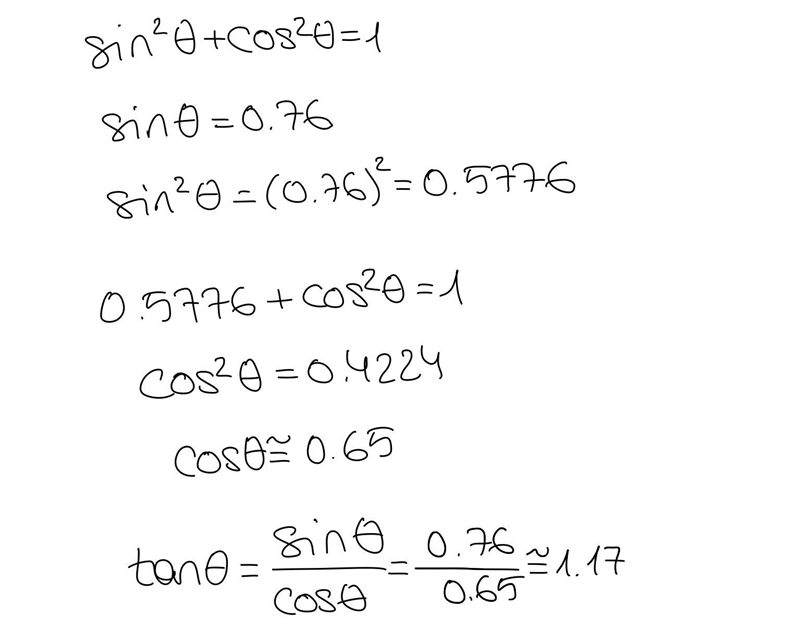 sin²θ+cos²θ=1
sinθ=0.76
sin²θ=(0.76)²=0.5776
0.5776+cos²θ=1
cos²θ=0.4224
cosθ≅0.65
tanθ=sinθ/cosθ=0.76/0.65≅1.17